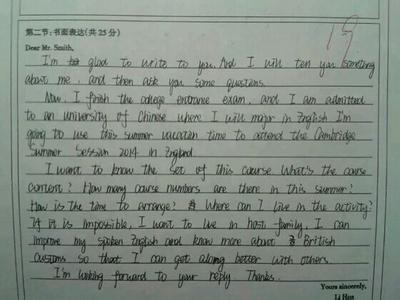 第二节:书面表达(共25分)
19
Dear Mr. Smith,
I'm glad to write to you. And I will tell you something
about me, and then ask you some questions.
Now, I finish the college entrance exam, and I am admitted
to an university of Chinese where I will major in English. I'm
going to use this summer vacation time to attend the Cambridge
Summer Session 2014 in England.
I want to know the set of this course. What's the course
content? How many course numbers are there in this summer?
How is the time to arrange? Where can I live in the activity?
If it is impossible, I want to live in host family. I can
improve my spoken English and know more about British
customs so that I can get along better with others.
I'm looking forward to your reply. Thanks.
Yours sincerely,
Li Hua